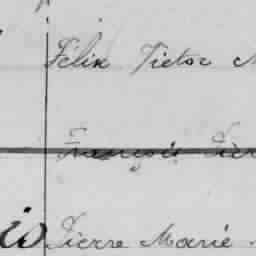 Félix Victor
François Pier
Pierre Marie